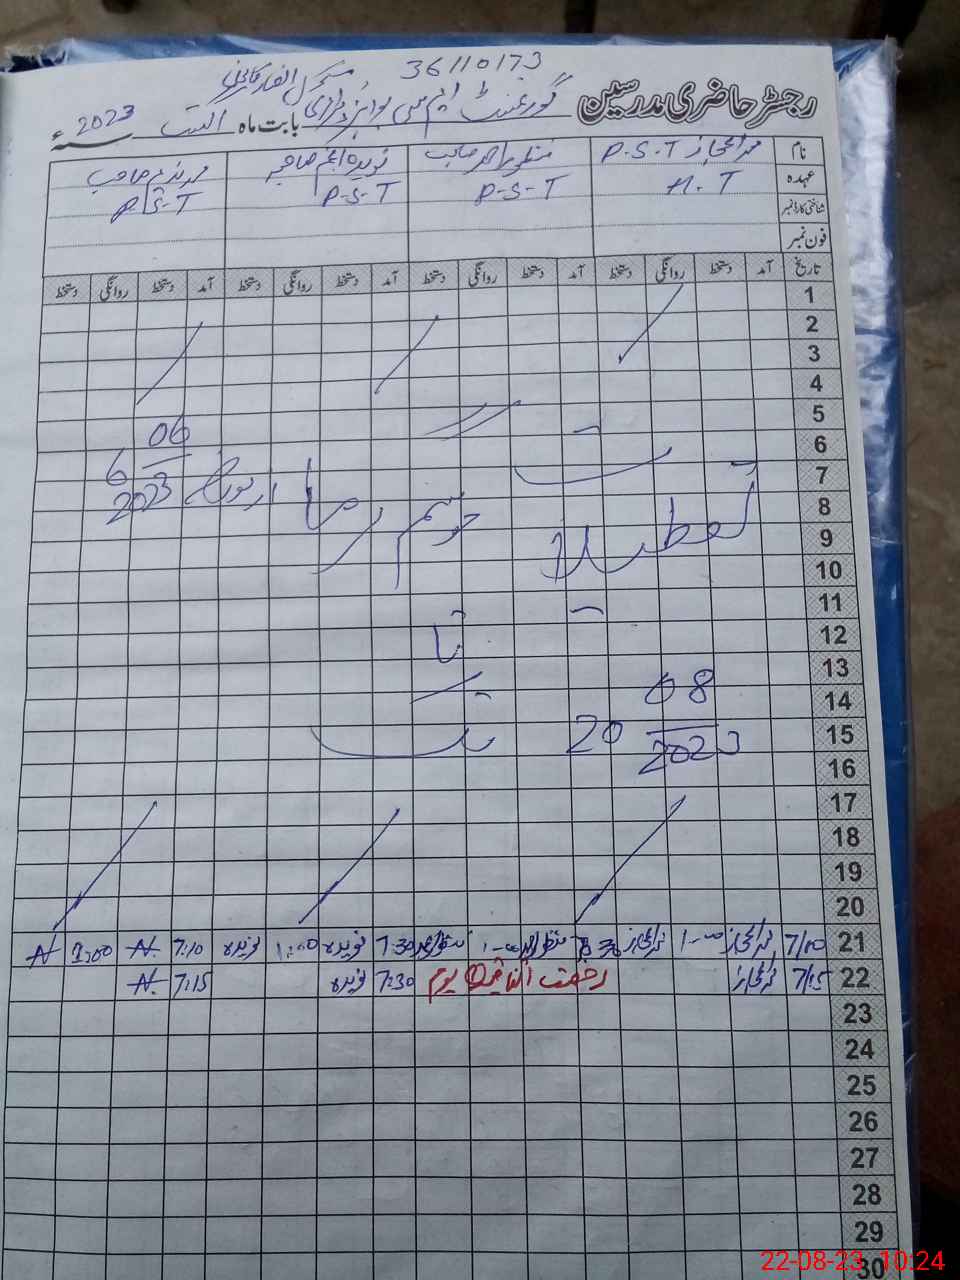 36110173
رجسٹر حاضری مدرسین گورنمنٹ ایم سی بوائز پرائمری سکول
بابت ماہ اگست سنہ 2023ء
نام محمد اعجاز P.S.T منظور احمد صاحب
عہدہ H.T P-S-T P-S-T P.S-T
شناختی کارڈ نمبر
فون نمبر
تاریخ آمد دستخط روانگی دستخط آمد دستخط روانگی دستخط آمد دستخط روانگی دستخط آمد دستخط روانگی دستخط
1
2
3
4
5
6
7
8
9
10
11
12
13
14
15
16
17
18
19
20
تعطیلات
موسم گرما
از مورخہ 6 06 2023
تا
20 08 2023
21 7/10 1-00 1-00 7:30 1:00 7:10 1:00
22 7/15 رخصت اتفاقیہ یوم 7:30 7:15
23
24
25
26
27
28
29
30
22-08-23 10:24